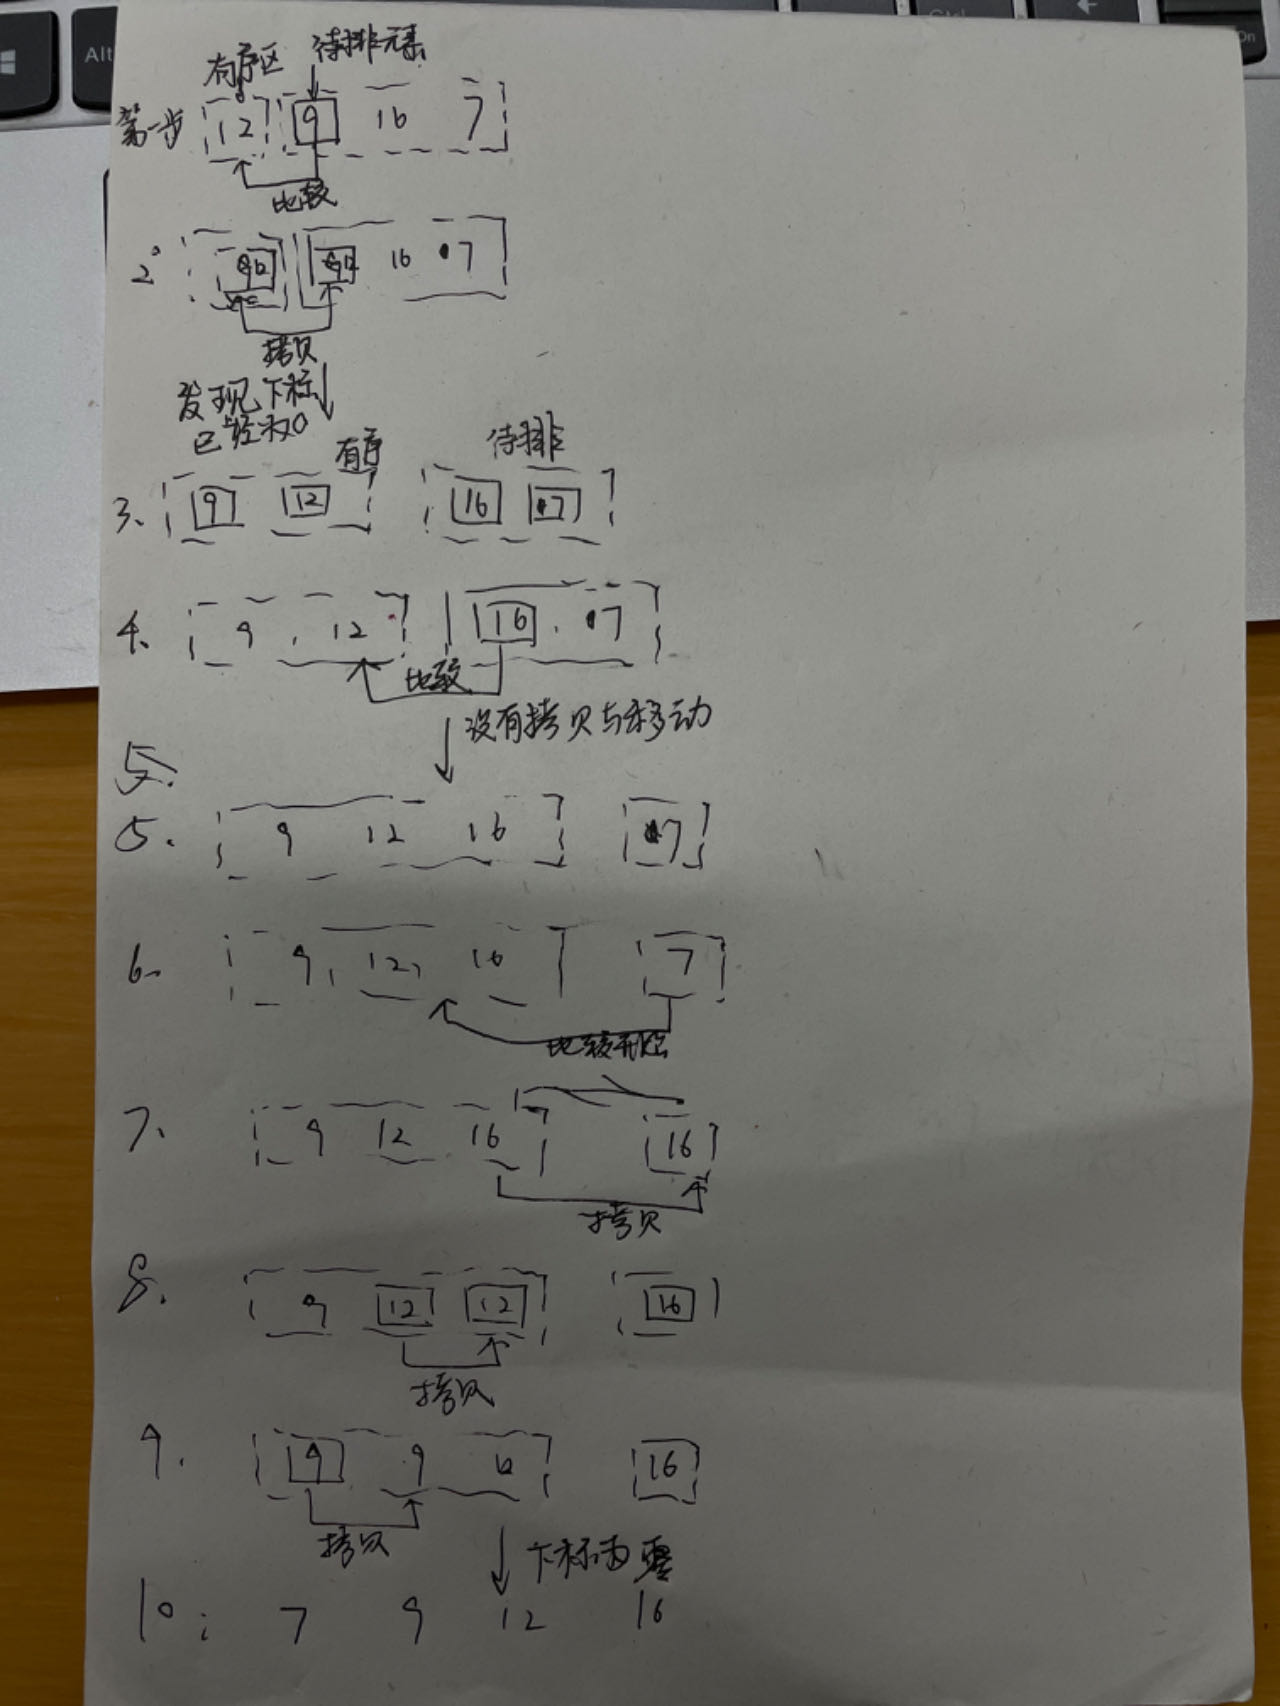 Alt
Ctrl
有序区 待排元素
第一步 12 9 16 7
比较
2° 16 7
拷贝
发现下标
已经为0
有序 待排
3、 9 12 16 7
4、 9, 12 16, 7
比较
没有拷贝与移动
5.
5. 9 12 16 7
6. 9, 12, 16 7
比较
7、 9 12 16 16
拷贝
8. 9 12 12 16
拷贝
9. 9 9 12 16
拷贝
下标为零
10: 7 9 12 16